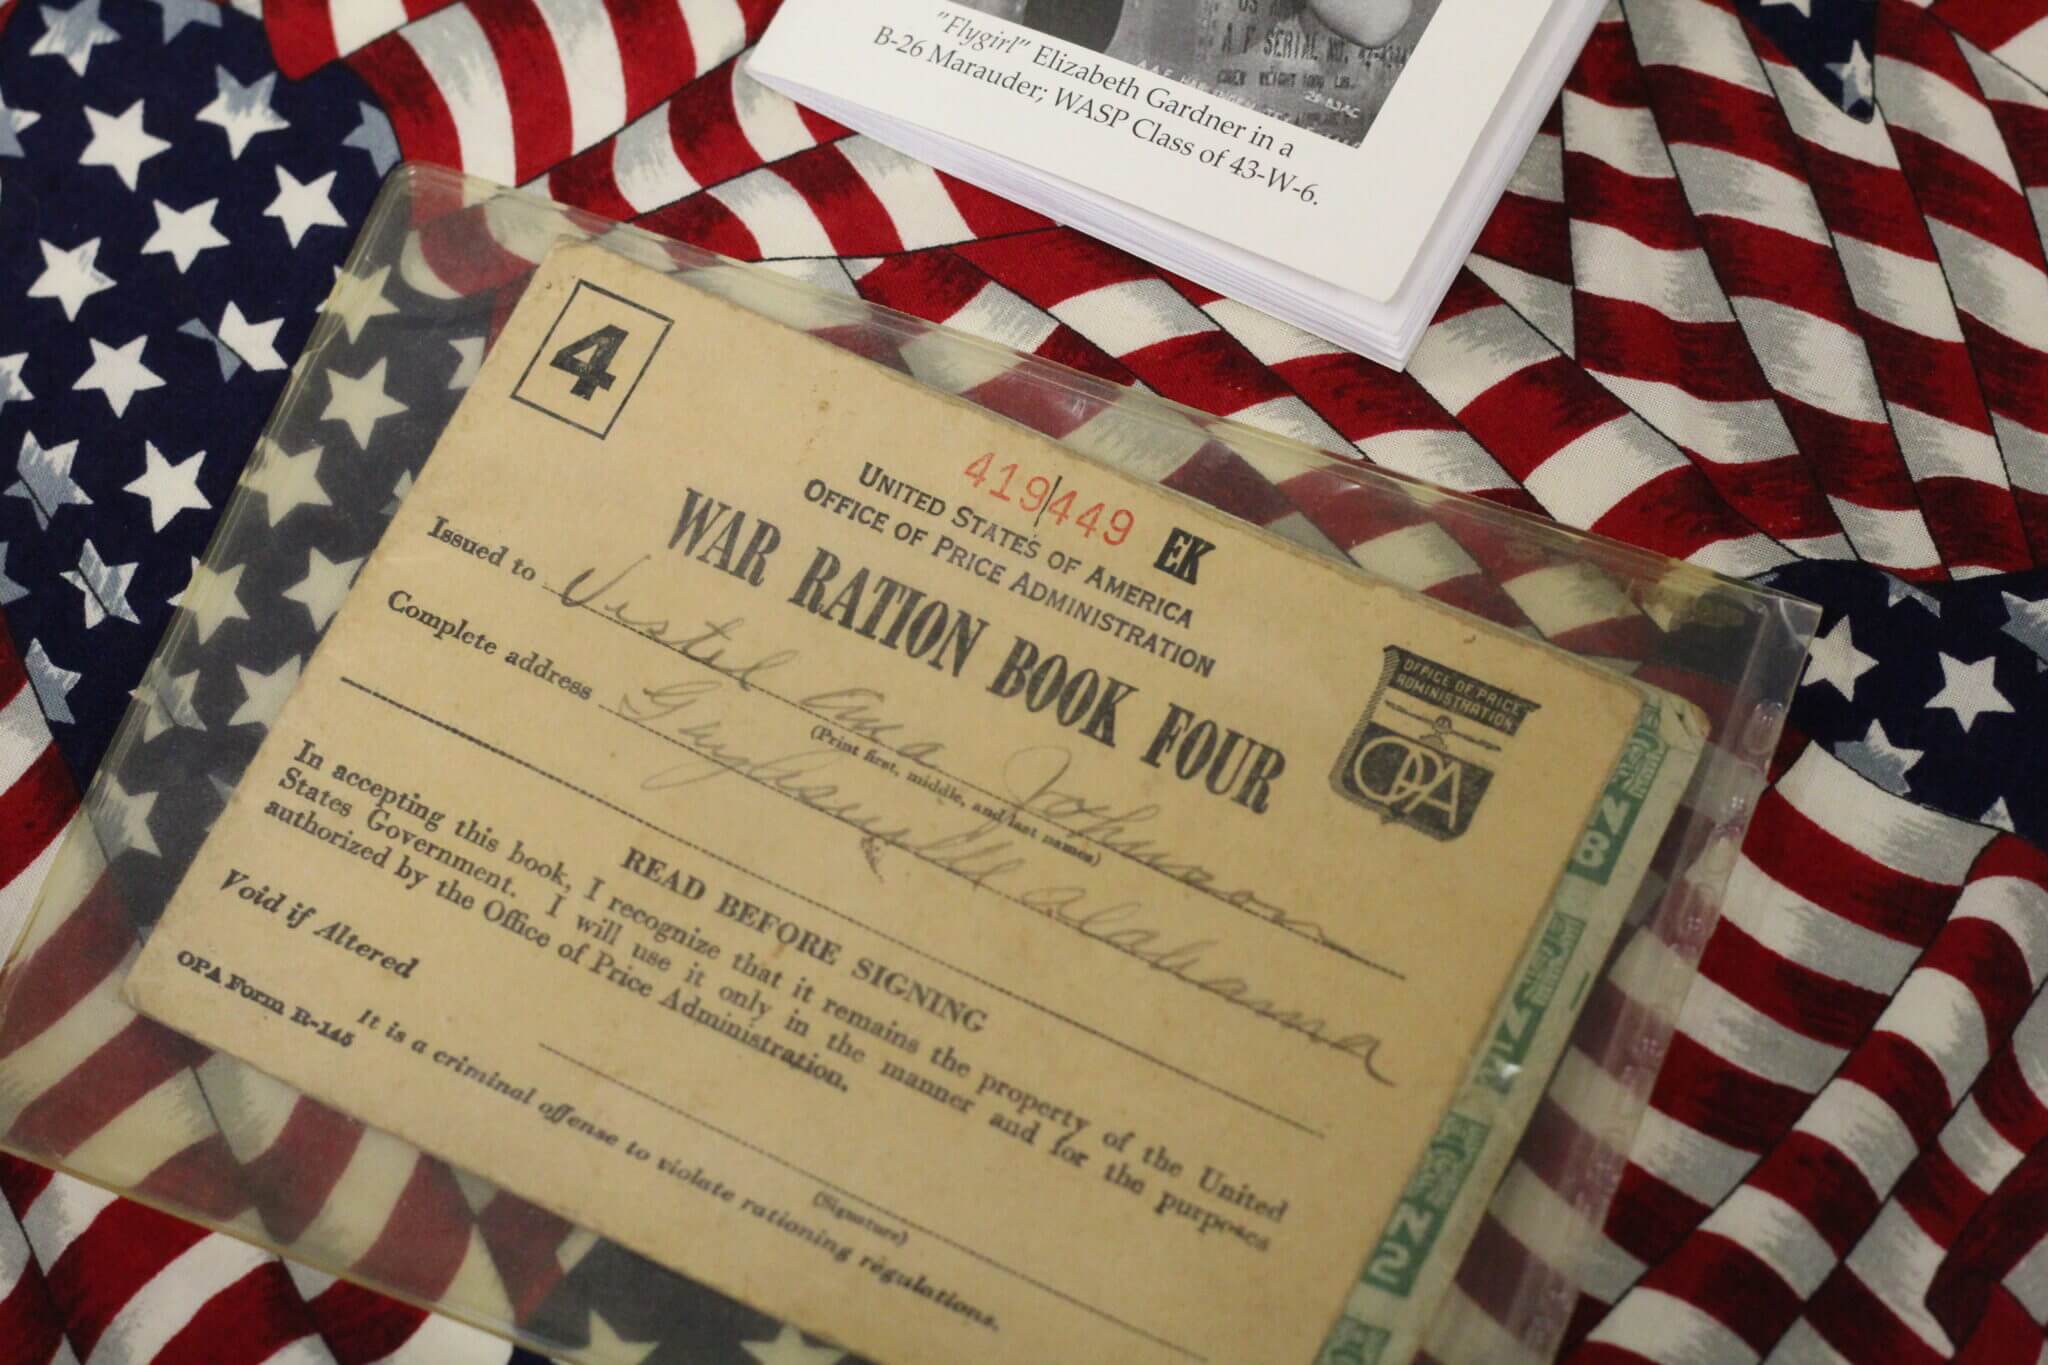 "Flygirl" Elizabeth Gardner in a
B-26 Marauder; WASP Class of 43-W-6.
4
419449 EK
UNITED STATES OF AMERICA
OFFICE OF PRICE ADMINISTRATION
WAR RATION BOOK FOUR
OFFICE OF PRICE
ADMINISTRATION
OPA
Issued to Vistel Ama Johnson
(Print first, middle, and last names)
Complete address Gaylesville Alabama
READ BEFORE SIGNING
In accepting this book, I recognize that it remains the property of the United
States Government. I will use it only in the manner and for the purposes
authorized by the Office of Price Administration.
Void if Altered
(Signature)
OPA Form R-145
It is a criminal offense to violate rationing regulations.